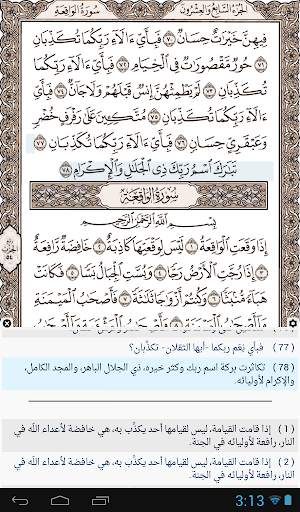 سُورَةُ الوَاقِعَةِ
الجُزْءُ السَّابِعُ وَالعِشْرُونَ
فِيهِنَّ خَيْرَٰتٌ حِسَانٌ ۝٧٠ فَبِأَيِّ ءَالَآءِ رَبِّكُمَا تُكَذِّبَانِ
۝٧١ حُورٌ مَّقْصُورَٰتٌ فِى ٱلْخِيَامِ ۝٧٢ فَبِأَيِّ ءَالَآءِ رَبِّكُمَا
تُكَذِّبَانِ ۝٧٣ لَمْ يَطْمِثْهُنَّ إِنسٌ قَبْلَهُمْ وَلَا جَآنٌّ ۝٧٤ فَبِأَيِّ
ءَالَآءِ رَبِّكُمَا تُكَذِّبَانِ ۝٧٥ مُتَّكِـِٔينَ عَلَىٰ رَفْرَفٍ خُضْرٍ
وَعَبْقَرِىٍّ حِسَانٍ ۝٧٦ فَبِأَيِّ ءَالَآءِ رَبِّكُمَا تُكَذِّبَانِ ۝٧٧
تَبَٰرَكَ ٱسْمُ رَبِّكَ ذِى ٱلْجَلَٰلِ وَٱلْإِكْرَامِ ۝٧٨
سُورَةُ الوَاقِعَةِ
بِسْمِ ٱللَّهِ ٱلرَّحْمَٰنِ ٱلرَّحِيمِ
إِذَا وَقَعَتِ ٱلْوَاقِعَةُ ۝١ لَيْسَ لِوَقْعَتِهَا كَاذِبَةٌ ۝٢ خَافِضَةٌ رَّافِعَةٌ
۝٣ إِذَا رُجَّتِ ٱلْأَرْضُ رَجًّا ۝٤ وَبُسَّتِ ٱلْجِبَالُ بَسًّا ۝٥ فَكَانَتْ
هَبَآءً مُّنۢبَثًّا ۝٦ وَكُنتُمْ أَزْوَٰجًا ثَلَٰثَةً ۝٧ فَأَصْحَٰبُ ٱلْمَيْمَنَةِ
( 77 ) فبأي نِعَم ربكما -أيها الثقلان- تكذِّبان؟
( 78 ) تكاثرت بركة اسم ربك وكثر خيره، ذي الجلال الباهر، والمجد الكامل،
والإكرام لأوليائه.
( 1 ) إذا قامت القيامة، ليس لقيامها أحد يكذِّب به، هي خافضة لأعداء الله في
النار، رافعة لأوليائه في الجنة.
( 2 ) إذا قامت القيامة، ليس لقيامها أحد يكذِّب به، هي خافضة لأعداء الله في
النار، رافعة لأوليائه في الجنة.
3:13